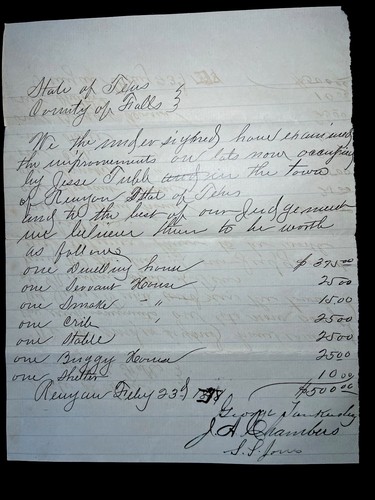 State of Texas
County of Falls
We the undersigned have examined
the improvements on lots now occupied
by Jesse Tubb and in the town
of Kenyon State of Texas
and to the best of our Judgement
we believe them to be worth
as follows
one Dwelling house $ 375.00
one Servant House 25 00
one Smoke " 15 00
one Crib 25 00
one Stable 25 00
one Buggy House 25 00
one Shelter 10 00
$500 00
Feby 23d
George
J. A. Chambers
S. S. Jones